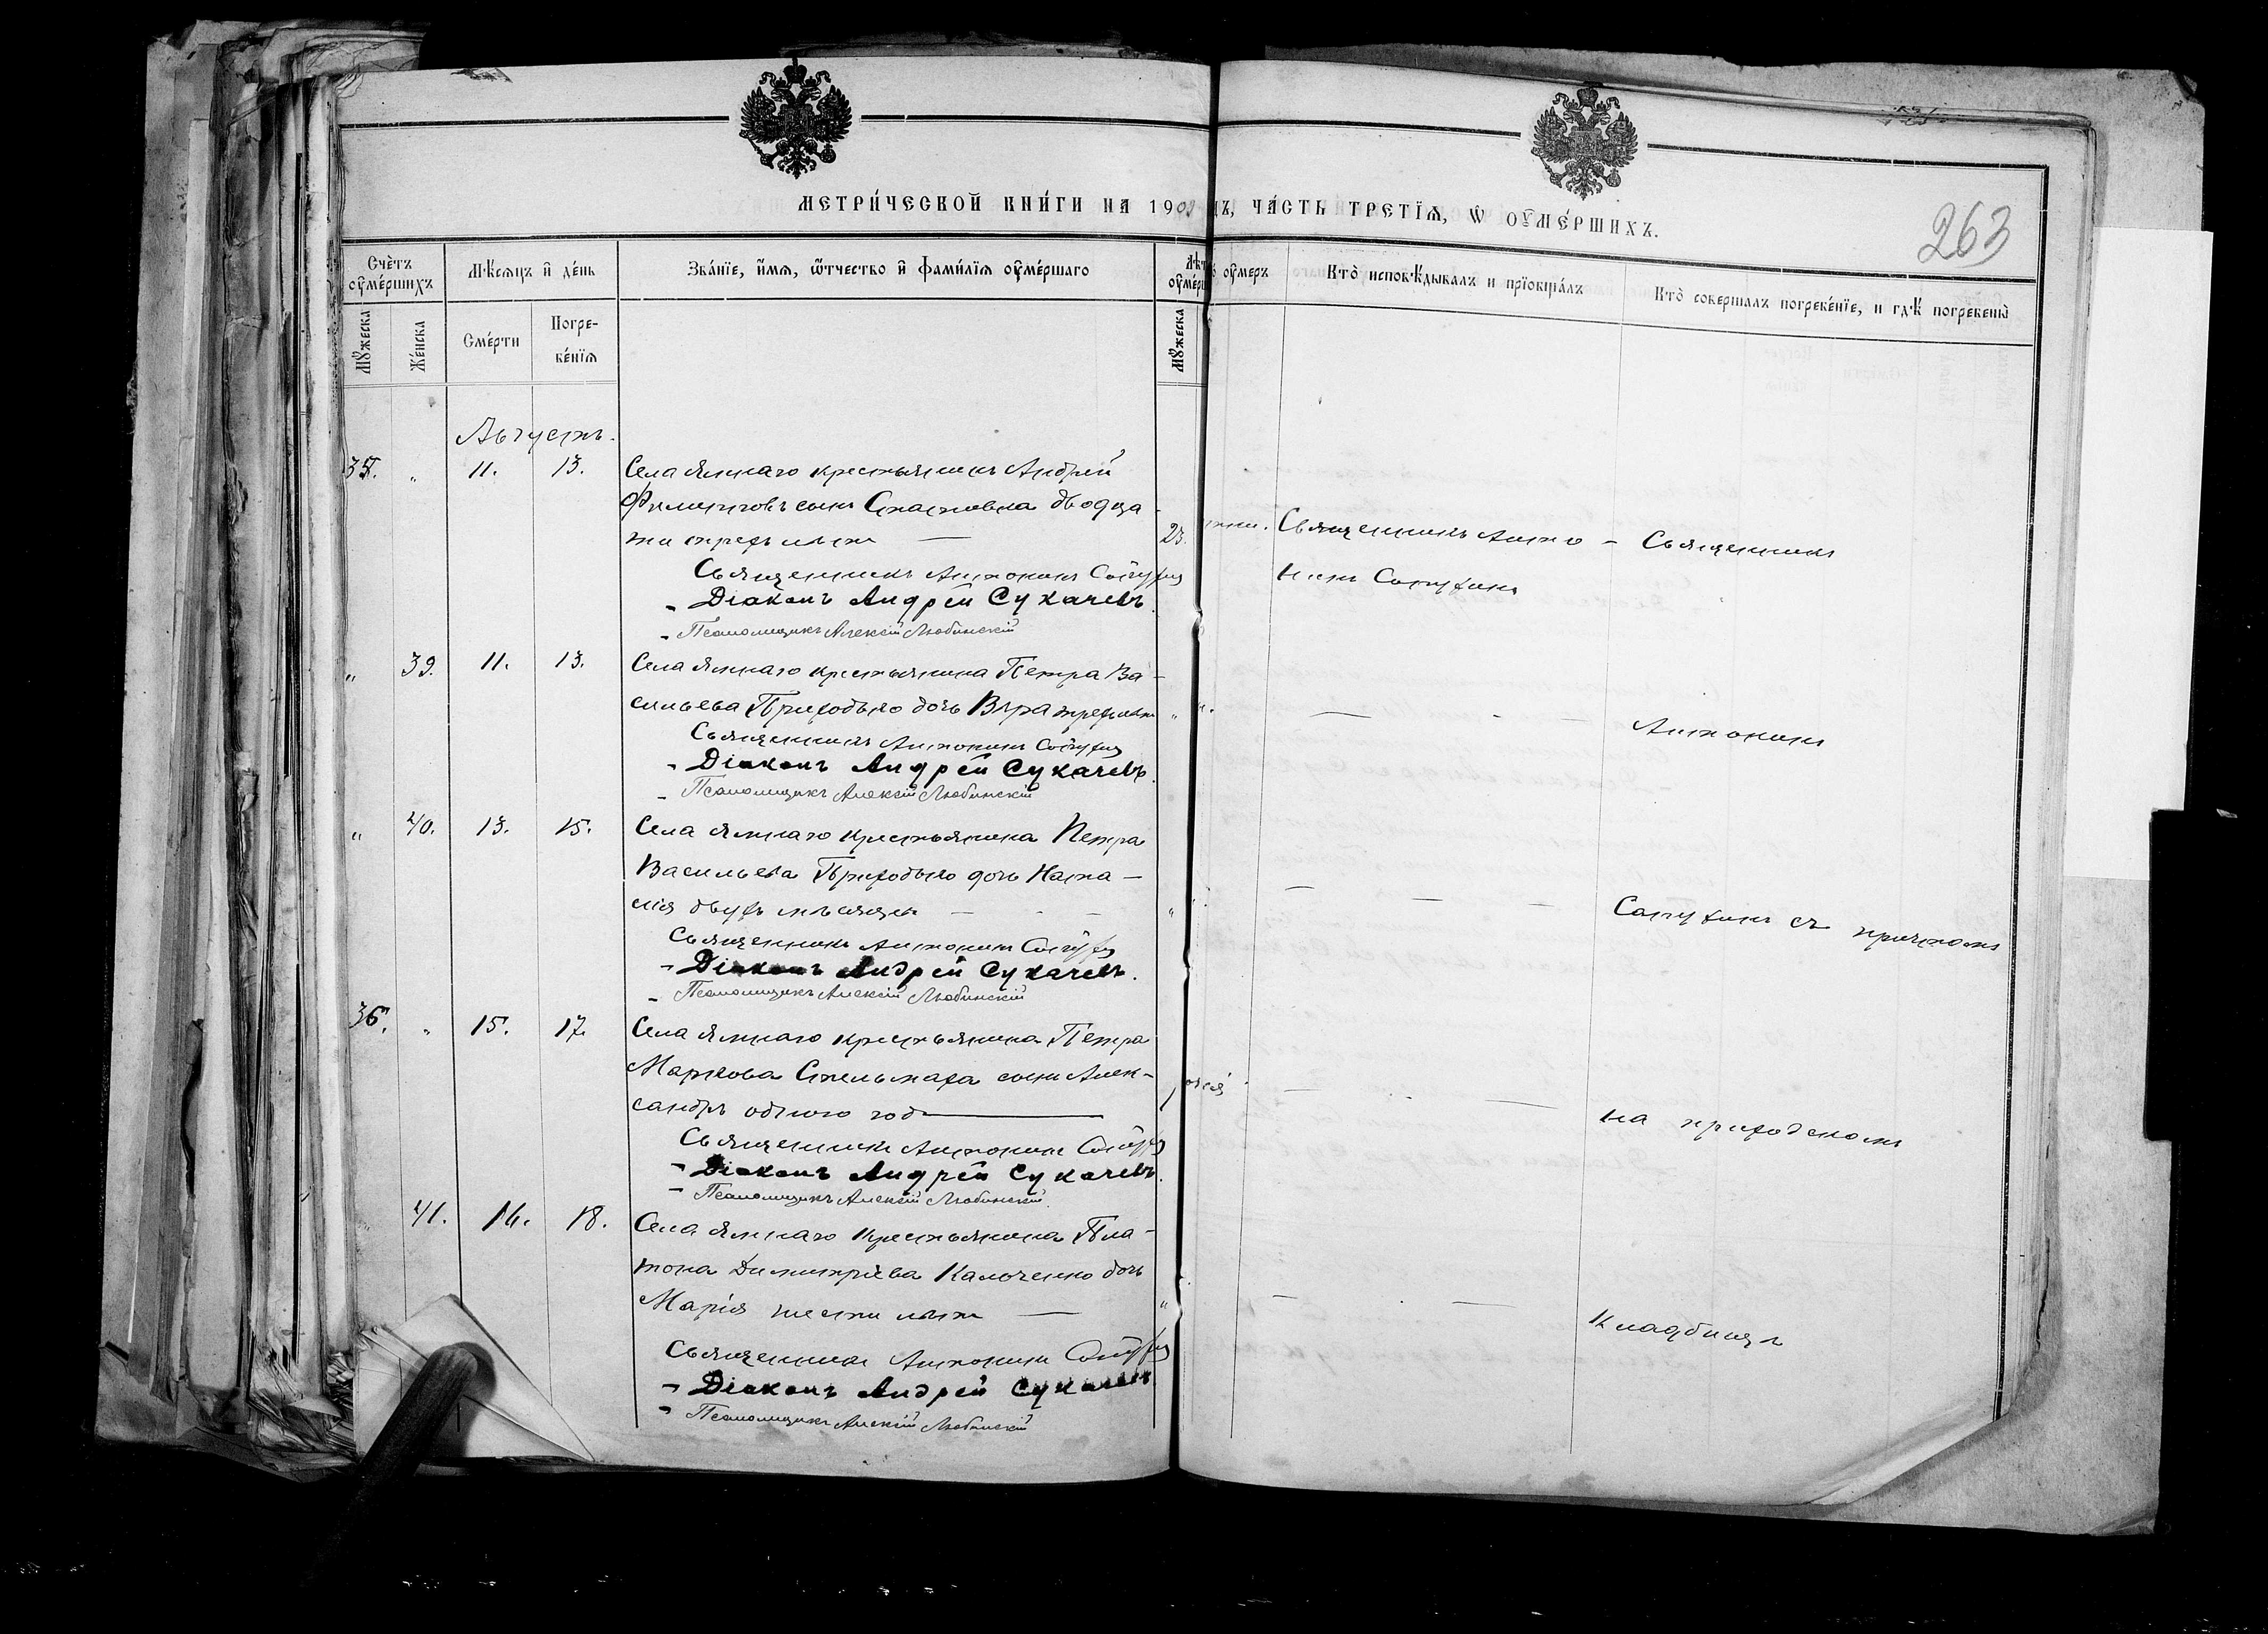 МЕТРИ́ЧЕСКОЙ КНИ́ГИ НА 1902 ДЪ, ЧА́СТЬ ТРЕТІѦ, Ѡ ОУМЕ́РШИХЪ.
263
Счѐтъ оуме́ршихъ
Мѣсяцъ и̂ де́нь
Зва́нїе, и́мѧ, ѻ҆́тчество и҆ фами́лїѧ оуме́ршаго
оумеръ
Кто̀ исповѣ́дывалъ и прїовща́лъ
Кто̀ соверша́лъ погребе́нїе, и гдѣ̀ погребены̀
Мꙋжеска
Же́нска
Сме́рти
Погребе́нїѧ
Мꙋжеска
Августъ.
35. " 11. 13. Села Ямнаго крестьянинъ Андрей
сынъ двадца-
ти трехъ лѣтъ — 23.
Священникъ Антонинъ
Діаконъ Андрей Сукачевъ.
Псаломщикъ Алексій Любинскій
Священникъ Анто-
нинъ
Священникъ
" 39. 11. 13. Села Ямнаго крестьянина Петра Ва-
сильева Приходько дочь Вѣра трехъ лѣтъ "
Священникъ Антонинъ
Діаконъ Андрей Сукачевъ.
Псаломщикъ Алексій Любинскій
Антонинъ
" 40. 13. 15. Села Ямнаго крестьянина Петра
Васильева Приходько дочь Ната-
лія двухъ мѣсяцевъ — "
Священникъ Антонинъ
Діаконъ Андрей Сукачевъ.
Псаломщикъ Алексій Любинскій
съ причтомъ
36. " 15. 17. Села Ямнаго крестьянина Петра
Маркова Стельмаха сынъ Алек-
сандръ одного года — 1
Священникъ Антонинъ
Діаконъ Андрей Сукачевъ.
Псаломщикъ Алексій Любинскій
на приходскомъ
" 41. 16. 18. Села Ямнаго крестьянина Пла-
тона Димитріева Кальченко дочь
Марія шести лѣтъ — "
Священникъ Антонинъ
Діаконъ Андрей Сукачевъ
Псаломщикъ Алексій Любинскій
кладбищѣ